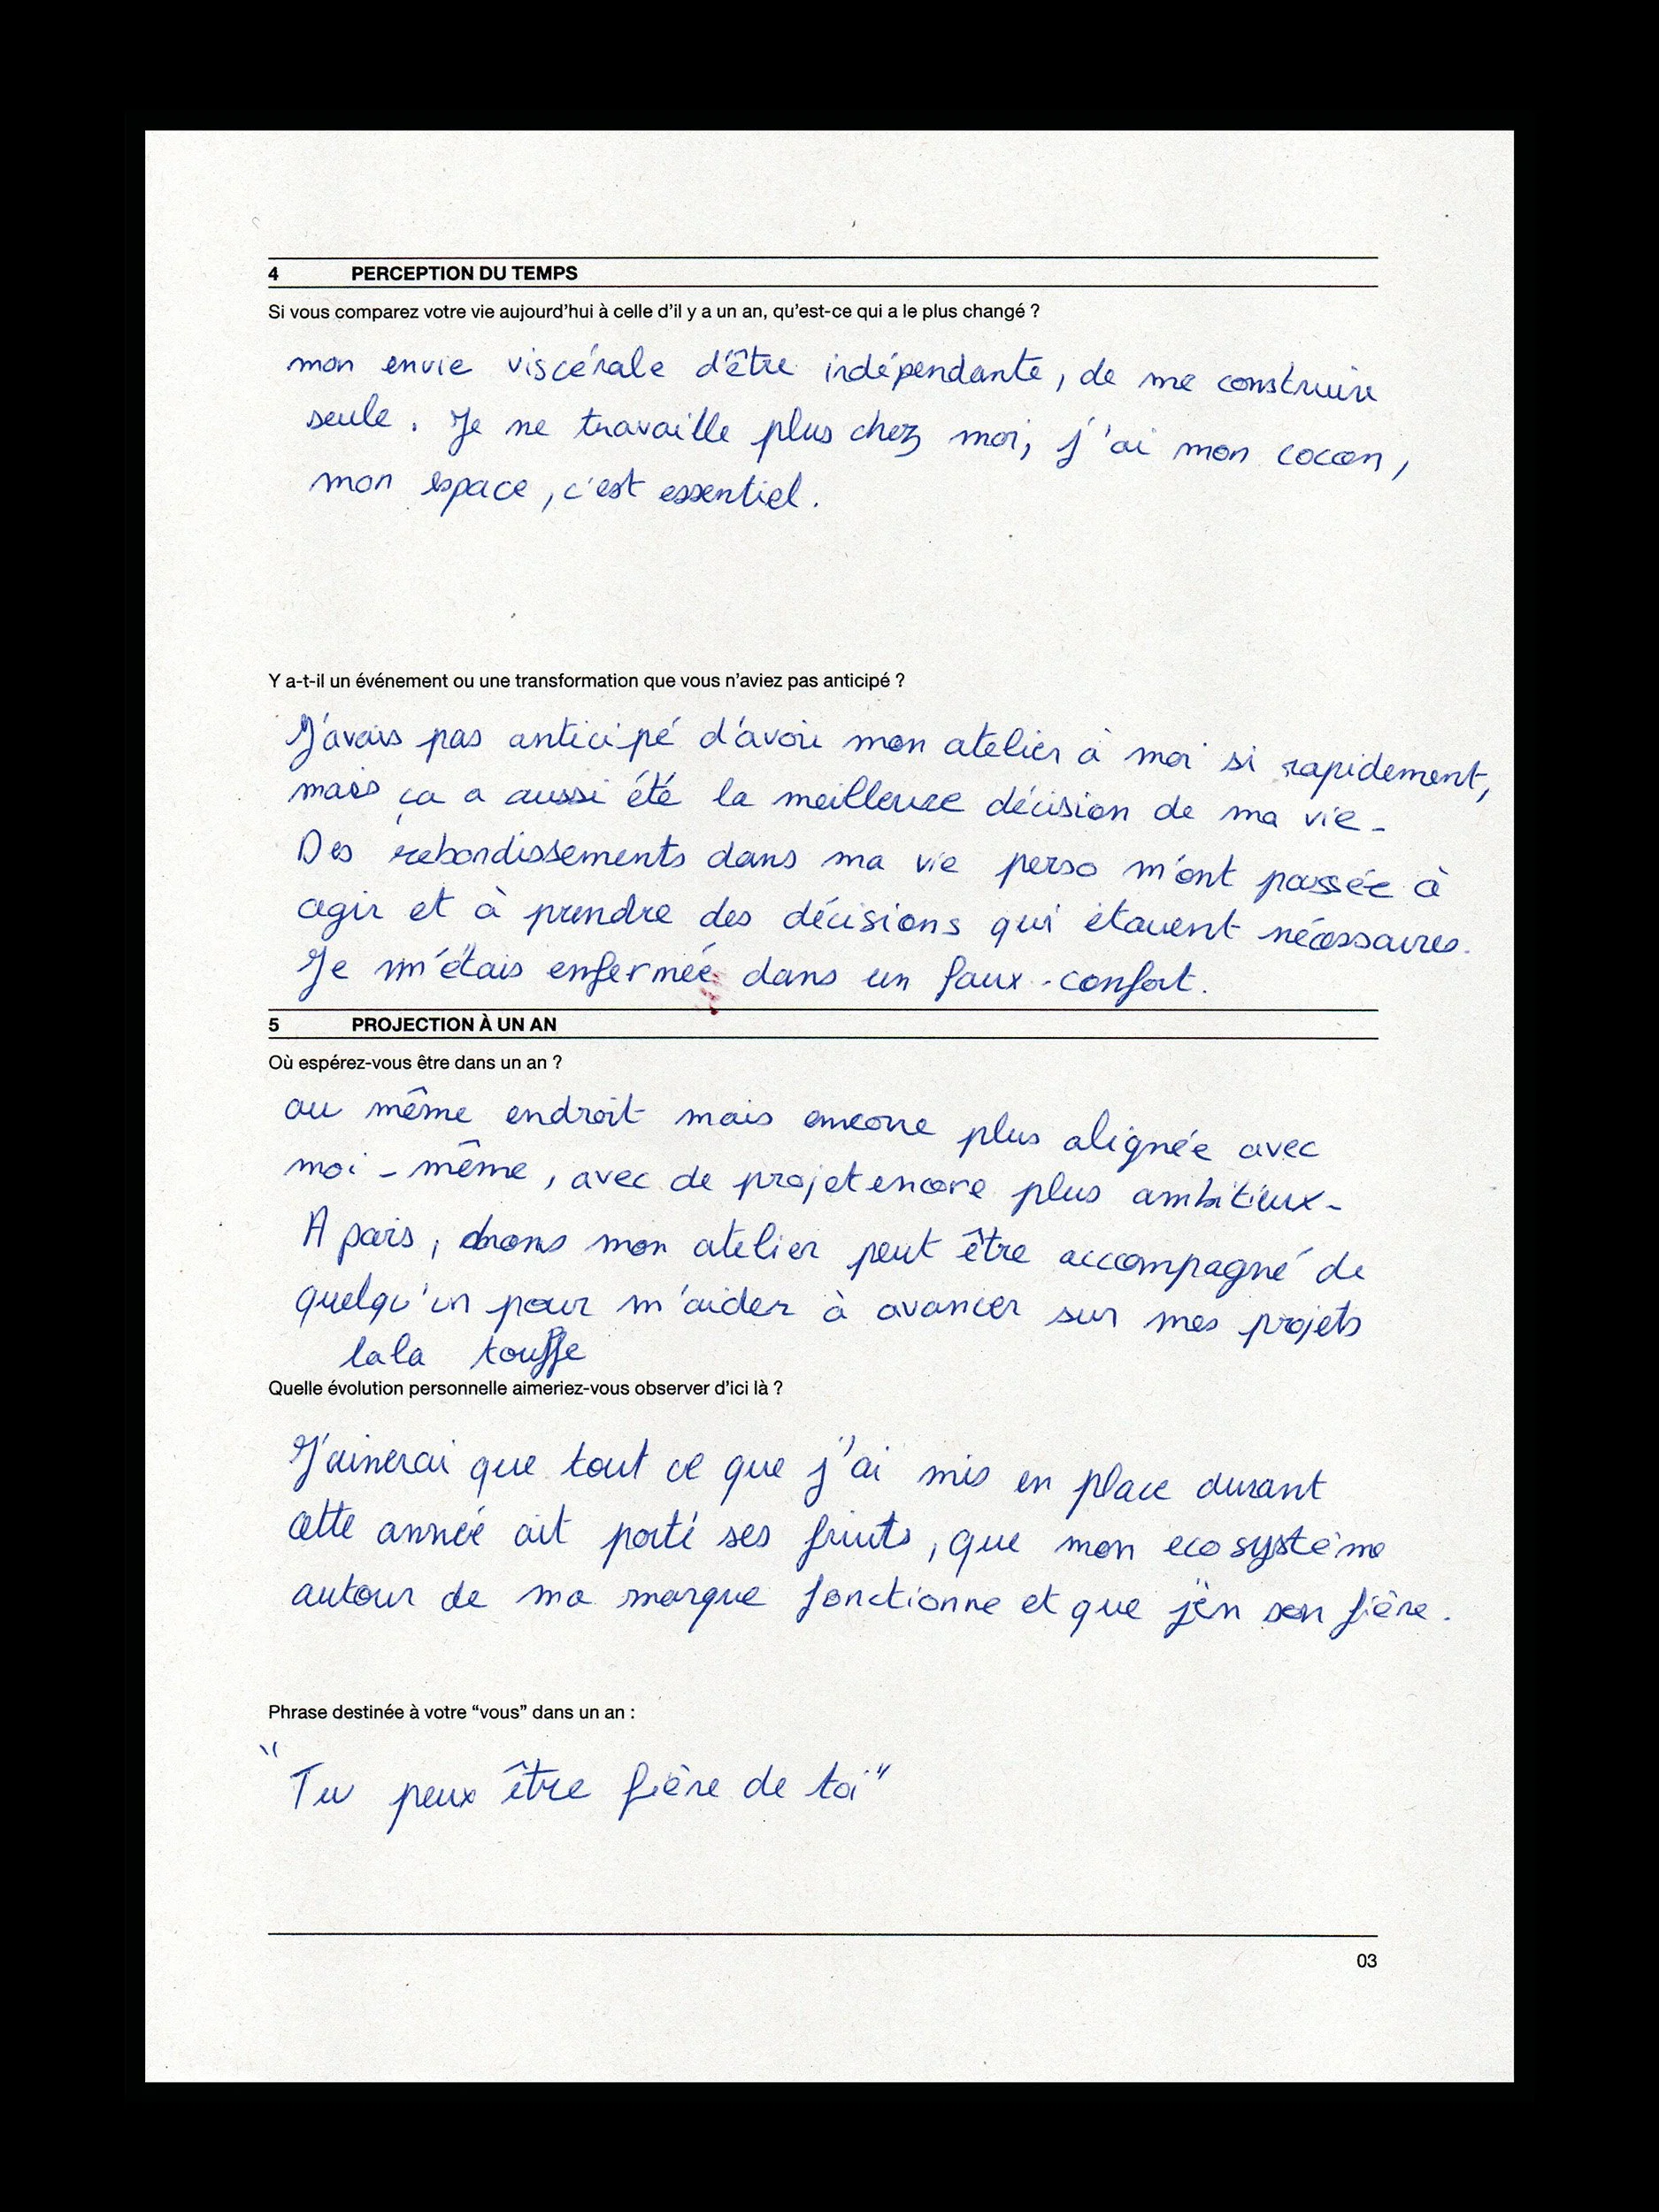 4 PERCEPTION DU TEMPS
Si vous comparez votre vie aujourd'hui à celle d'il y a un an, qu'est-ce qui a le plus changé ?
mon envie viscérale d'être indépendante, de me construire
seule. Je ne travaille plus chez moi, j'ai mon cocon,
mon espace, c'est essentiel.
Y a-t-il un événement ou une transformation que vous n'aviez pas anticipé ?
J'avais pas anticipé d'avoir mon atelier à moi si rapidement,
mais ça a aussi été la meilleure décision de ma vie -
Des rebondissements dans ma vie perso m'ont poussée à
agir et à prendre des décisions qui étaient nécessaires.
Je m'étais enfermée dans un faux-confort.
5 PROJECTION À UN AN
Où espérez-vous être dans un an ?
au même endroit mais encore plus alignée avec
moi-même, avec de projet encore plus ambitieux -
A paris, dans mon atelier peut être accompagné de
quelqu'un pour m'aider à avancer sur mes projets
lala touffe
Quelle évolution personnelle aimeriez-vous observer d'ici là ?
J'aimerai que tout ce que j'ai mis en place durant
cette année ait porté ses fruits, que mon ecosystème
autour de ma marque fonctionne et que j'en sen fière.
Phrase destinée à votre “vous” dans un an :
"Tu peux être fière de toi"
03